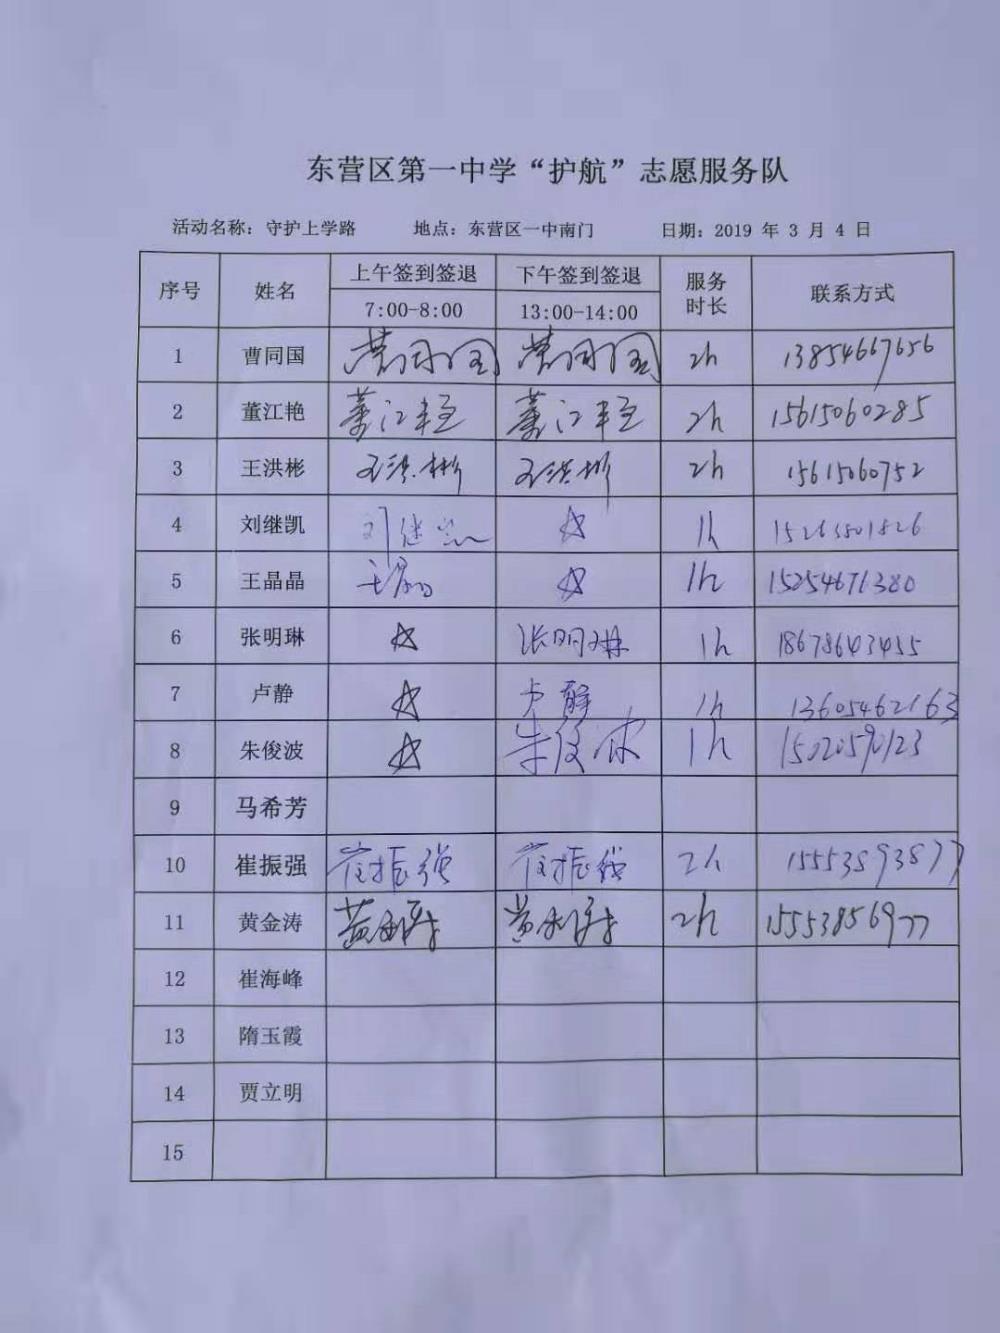 东营区第一中学“护航”志愿服务队
活动名称：守护上学路 地点：东营区一中南门 日期：2019 年 3 月 4 日
序号 姓名 上午签到签退 下午签到签退 服务时长 联系方式
7:00-8:00 13:00-14:00
1 曹同国 曹同国 曹同国 2h 13854667656
2 董江艳 董江艳 董江艳 2h 15615060285
3 王洪彬 王洪彬 王洪彬 2h 15615060752
4 刘继凯 刘继凯 ☆ 1h
5 王晶晶 王晶晶 ☆ 1h 15254671380
6 张明琳 ☆ 张明琳 1h 18678643455
7 卢静 ☆ 卢静 1h 13605462163
8 朱俊波 ☆ 朱俊波 1h 15020590123
9 马希芳
10 崔振强 崔振强 崔振强 2h 15553593877
11 黄金涛 黄金涛 黄金涛 2h 15553856977
12 崔海峰
13 隋玉霞
14 贾立明
15